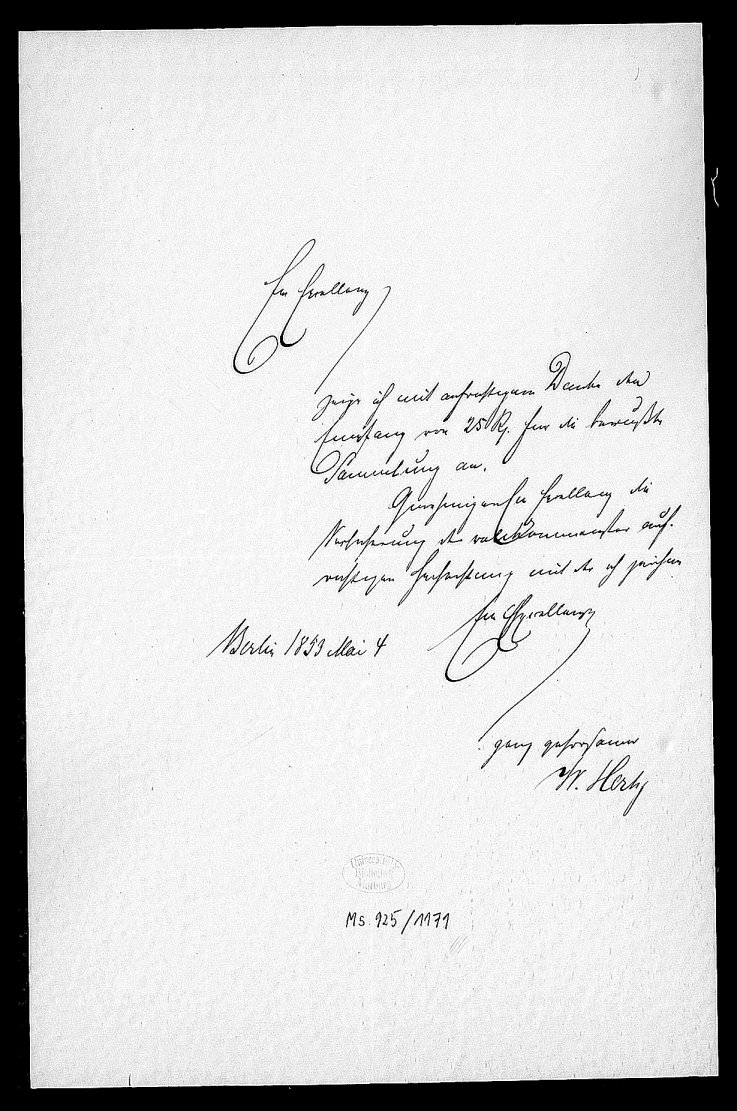 Ew Excellenz
zeige ich mit aufrichtigem Danke den
Empfang von 25 Rʒ. für die bewußte
Sammlung an.
Genehmigen Ew Excellenz die
Versicherung der vollkommensten auf-
richtigen Hochachtung mit der ich zeichne
Ew Excellenz
Berlin 1853 Mai 4
ganz gehorsamer
W. Hertz
Ms. 925/1171